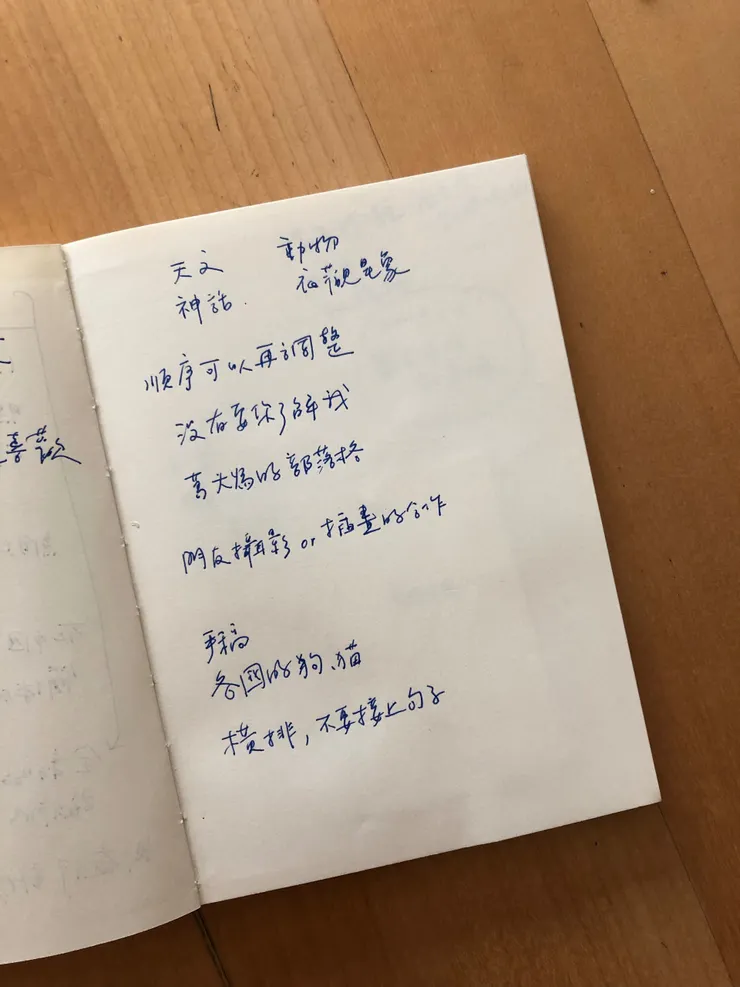 天文　動物
神話．
順序可以再調整
沒有要你了解我
的部落格
朋友攝影 or 插畫的合作
手稿
各國的狗、貓
橫排，不要接上句子
喜歡